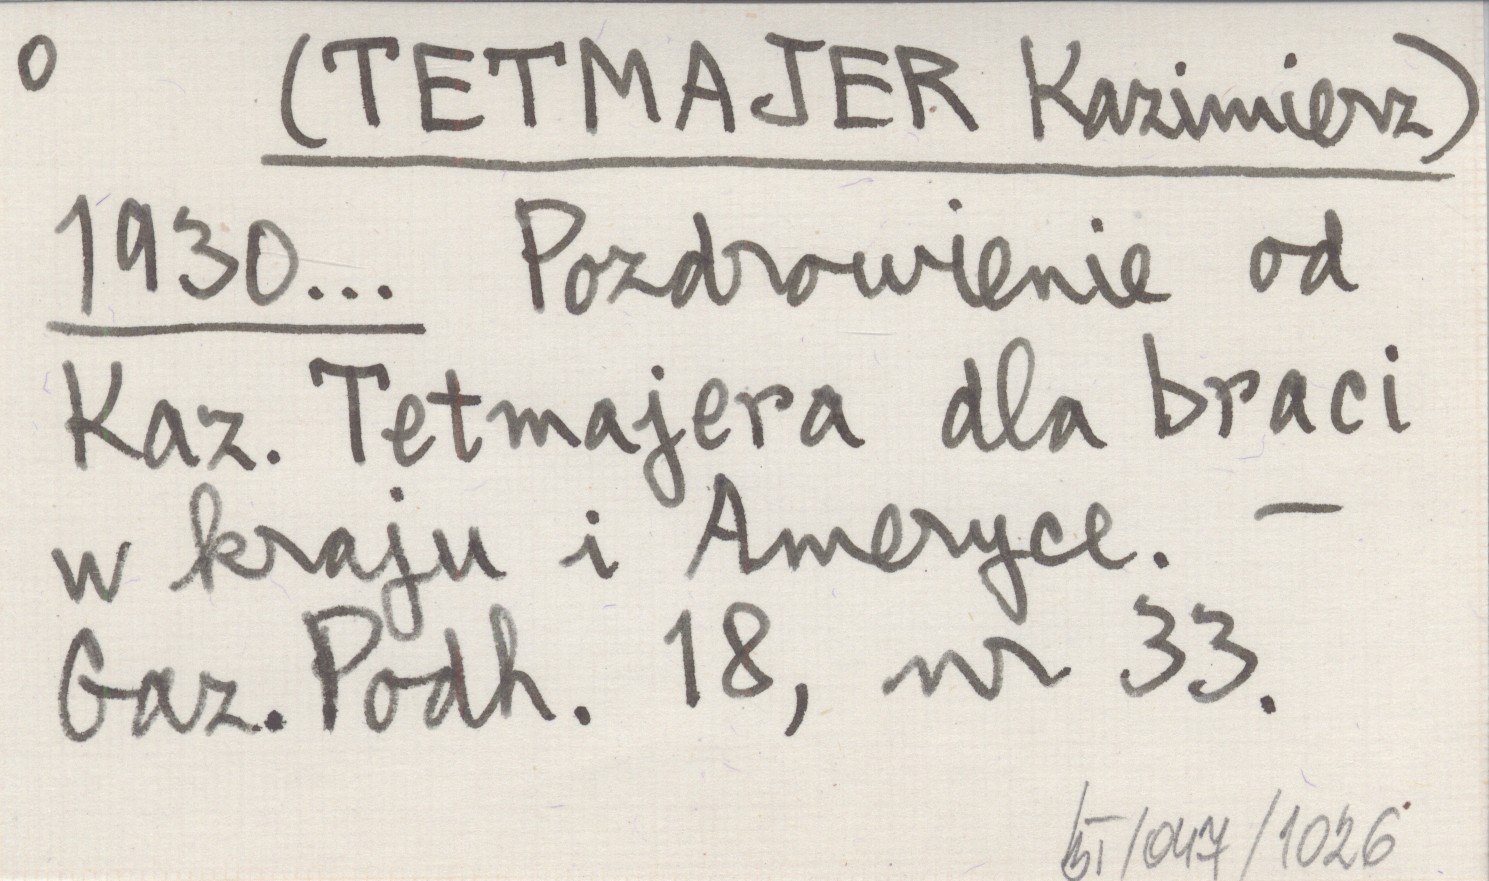 o (TETMAJER Kazimierz)
1930... Pozdrowienie od
Kaz. Tetmajera dla braci
w kraju i Ameryce. —
Gaz. Podh. 18, nr 33.
/047/1026